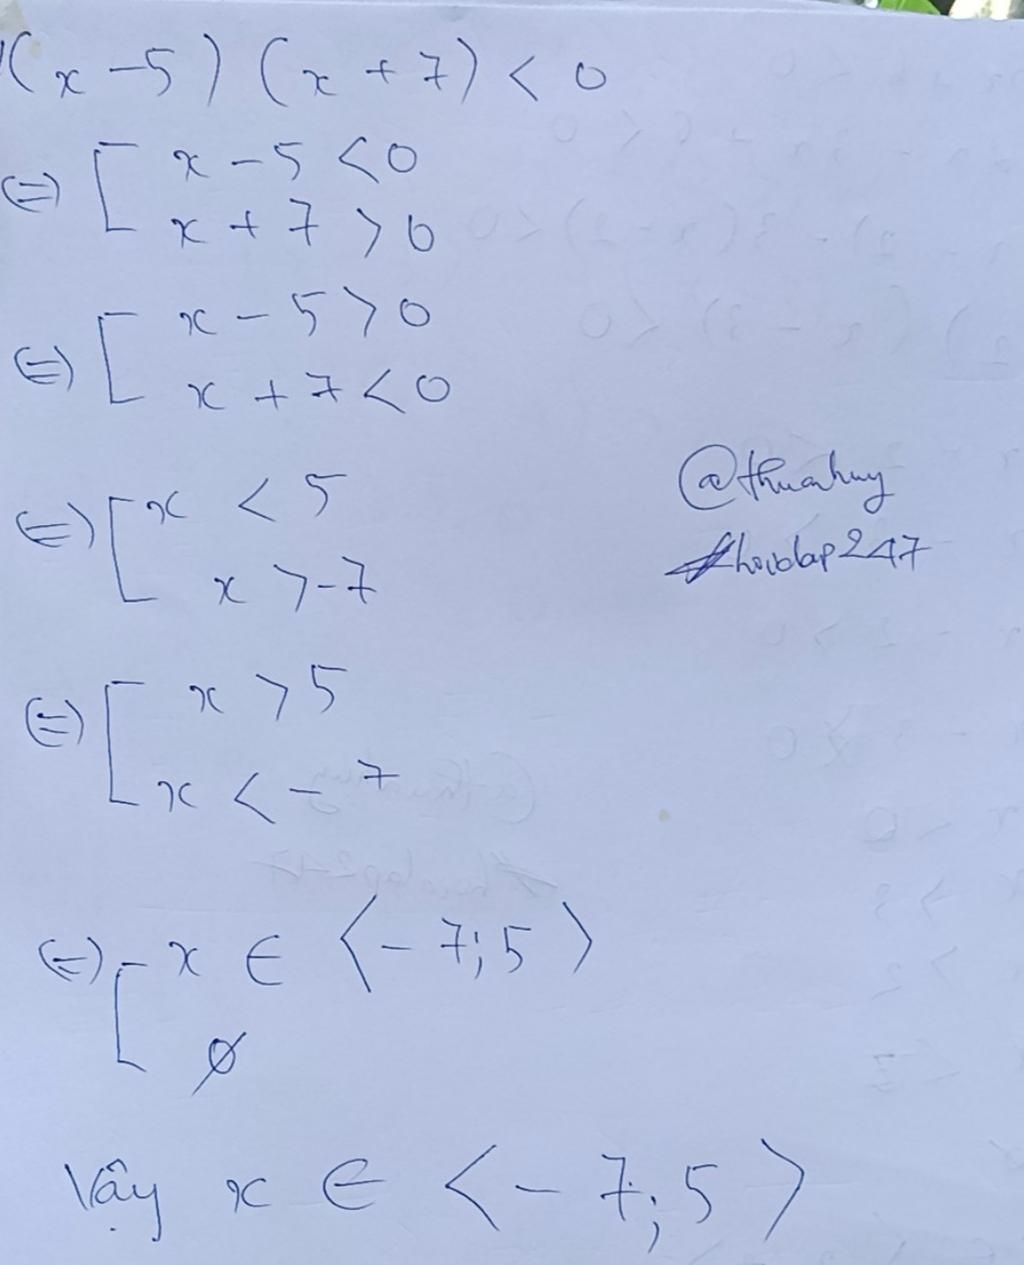 (x-5) (x+7) < 0
(=) [ x-5 < 0
x+7 > 0
(=) [ x-5 > 0
x+7 < 0
(=) [ x < 5
x > -7
@thuanhuy
#hoidap247
(=) [ x > 5
x < -7
(=) [ x ∈ <-7;5>
∅
Vậy x ∈ <-7;5>